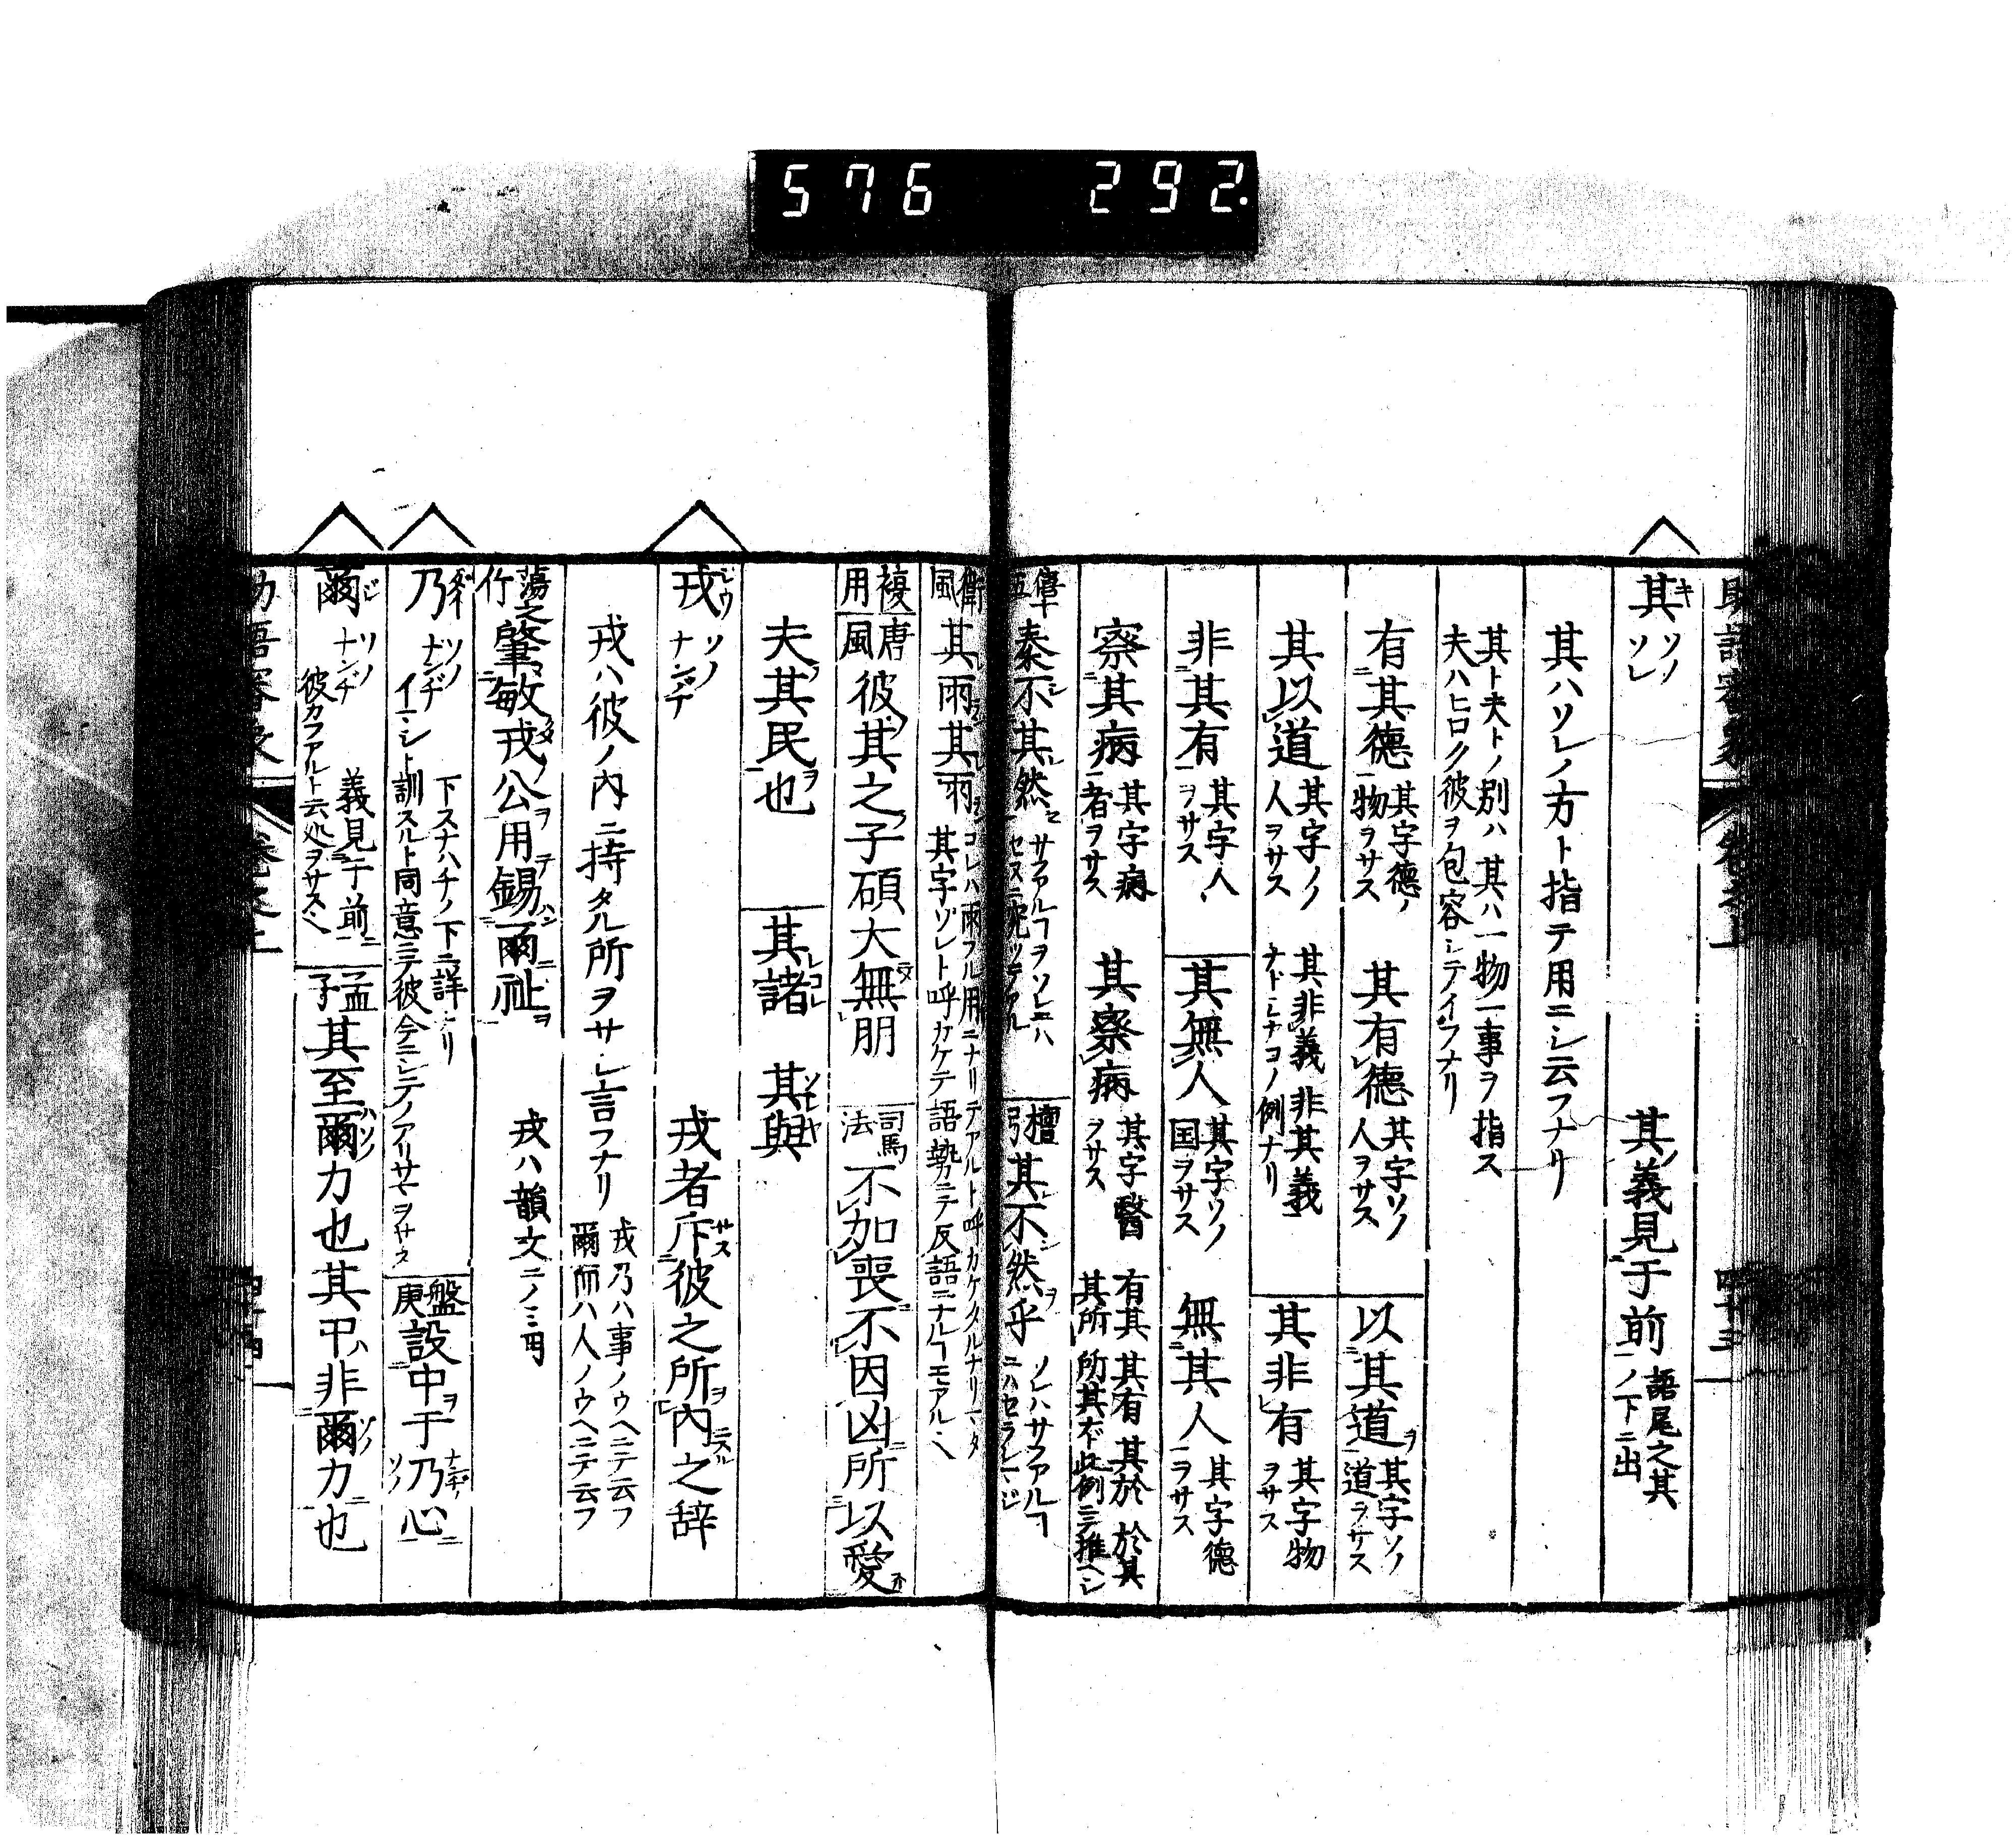 576 292.
其 キ ソノ ソレ 其義見于前 語尾之其ノ下ニ出
其ハソレノ方ト指テ用ニシ云フナリ
其ト夫トノ別ハ其ハ一物一事ヲ指ス
夫ハヒロク彼ヲ包容シテイフナリ
有其德 其字德ノ物ヲサス 其有德 其字ソノ人ヲサス 以其道 其字ソノ道ヲサス
其以道 其字ソノ人ヲサス 其非義 非其義ナトミナコノ例ナリ 其非有 其字物ヲサス
非其有 其字人ヲサス 其無人 其字ソノ国ヲサス 無其人 其字德ヲサス
察其病 其字病者ヲサス 其察病 其字醫ヲサス 有其 其有 其於 於其 其所 所其 本此例ニテ推ヘシ
秦不其然 檀弓 其不然乎 ソレハサファルヿニハセラレマジ
衛風 其雨其雨 コレハ雨フル用ニナリテアルト呼カケタルナリマタ其字ゾレト呼カケテ語勢ニテ反語ニナルヿモアルヘ
複用 唐風 彼其之子碩大無朋 司馬法 不加喪不因凶所以愛
夫其民也 其諸 其與
戎 ジウ ソノ ナンヂ 戎者斥彼之所內之辞
戎ハ彼ノ內ニ持タル所ヲサシ言フナリ 戎乃ハ事ノウヘニテ云フ 爾而ハ人ノウヘニテ云フ
蕩之 肇敏戎公用錫爾祉 戎ハ韻文ニノミ用
乃 ソノ ナンヂ 下スナハチノ下ニ詳ナリ イマシト訓スルト同意ニテ彼今ニシテノアリサマヲサス 盤庚 設中于乃心
爾 ジ ソノ ナンヂ 義見于前 彼カフアルト云処ヲサスヘ 孟子 其至爾力也其中非爾力也